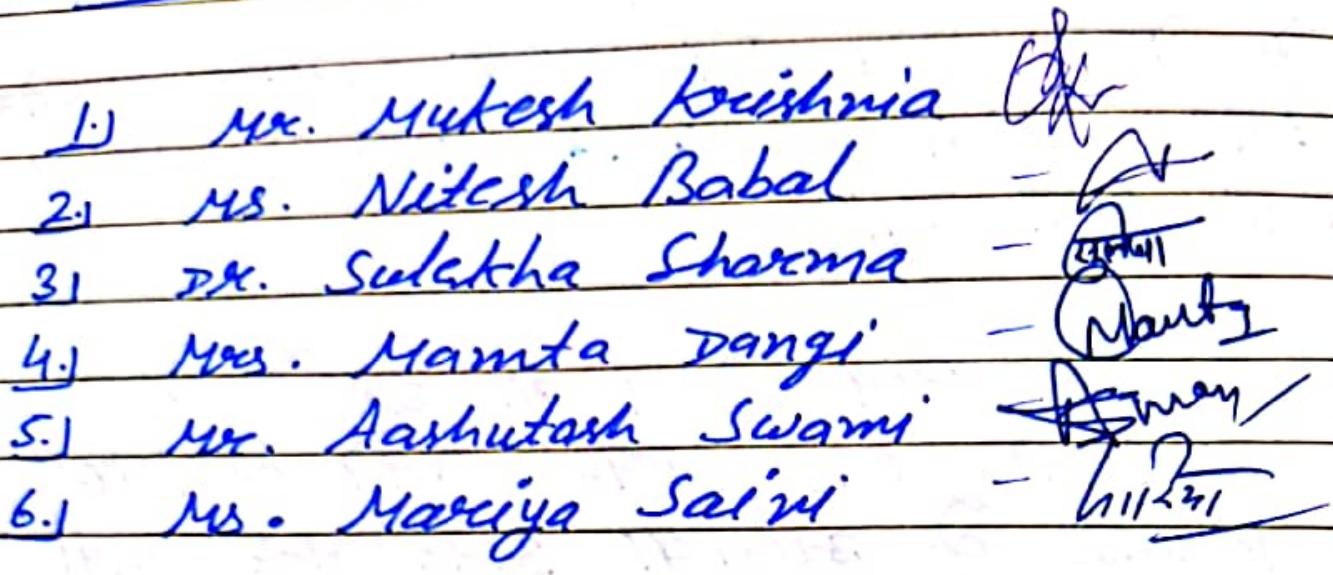 1.) Mr. Mukesh Krishnia
2.) Ms. Nitesh Babal -
3.) Dr. Sulekha Sharma -
4.) Mrs. Mamta Dangi - Mamta
5.) Mr. Aashutosh Swami
6.) Ms. Mariya Saini -